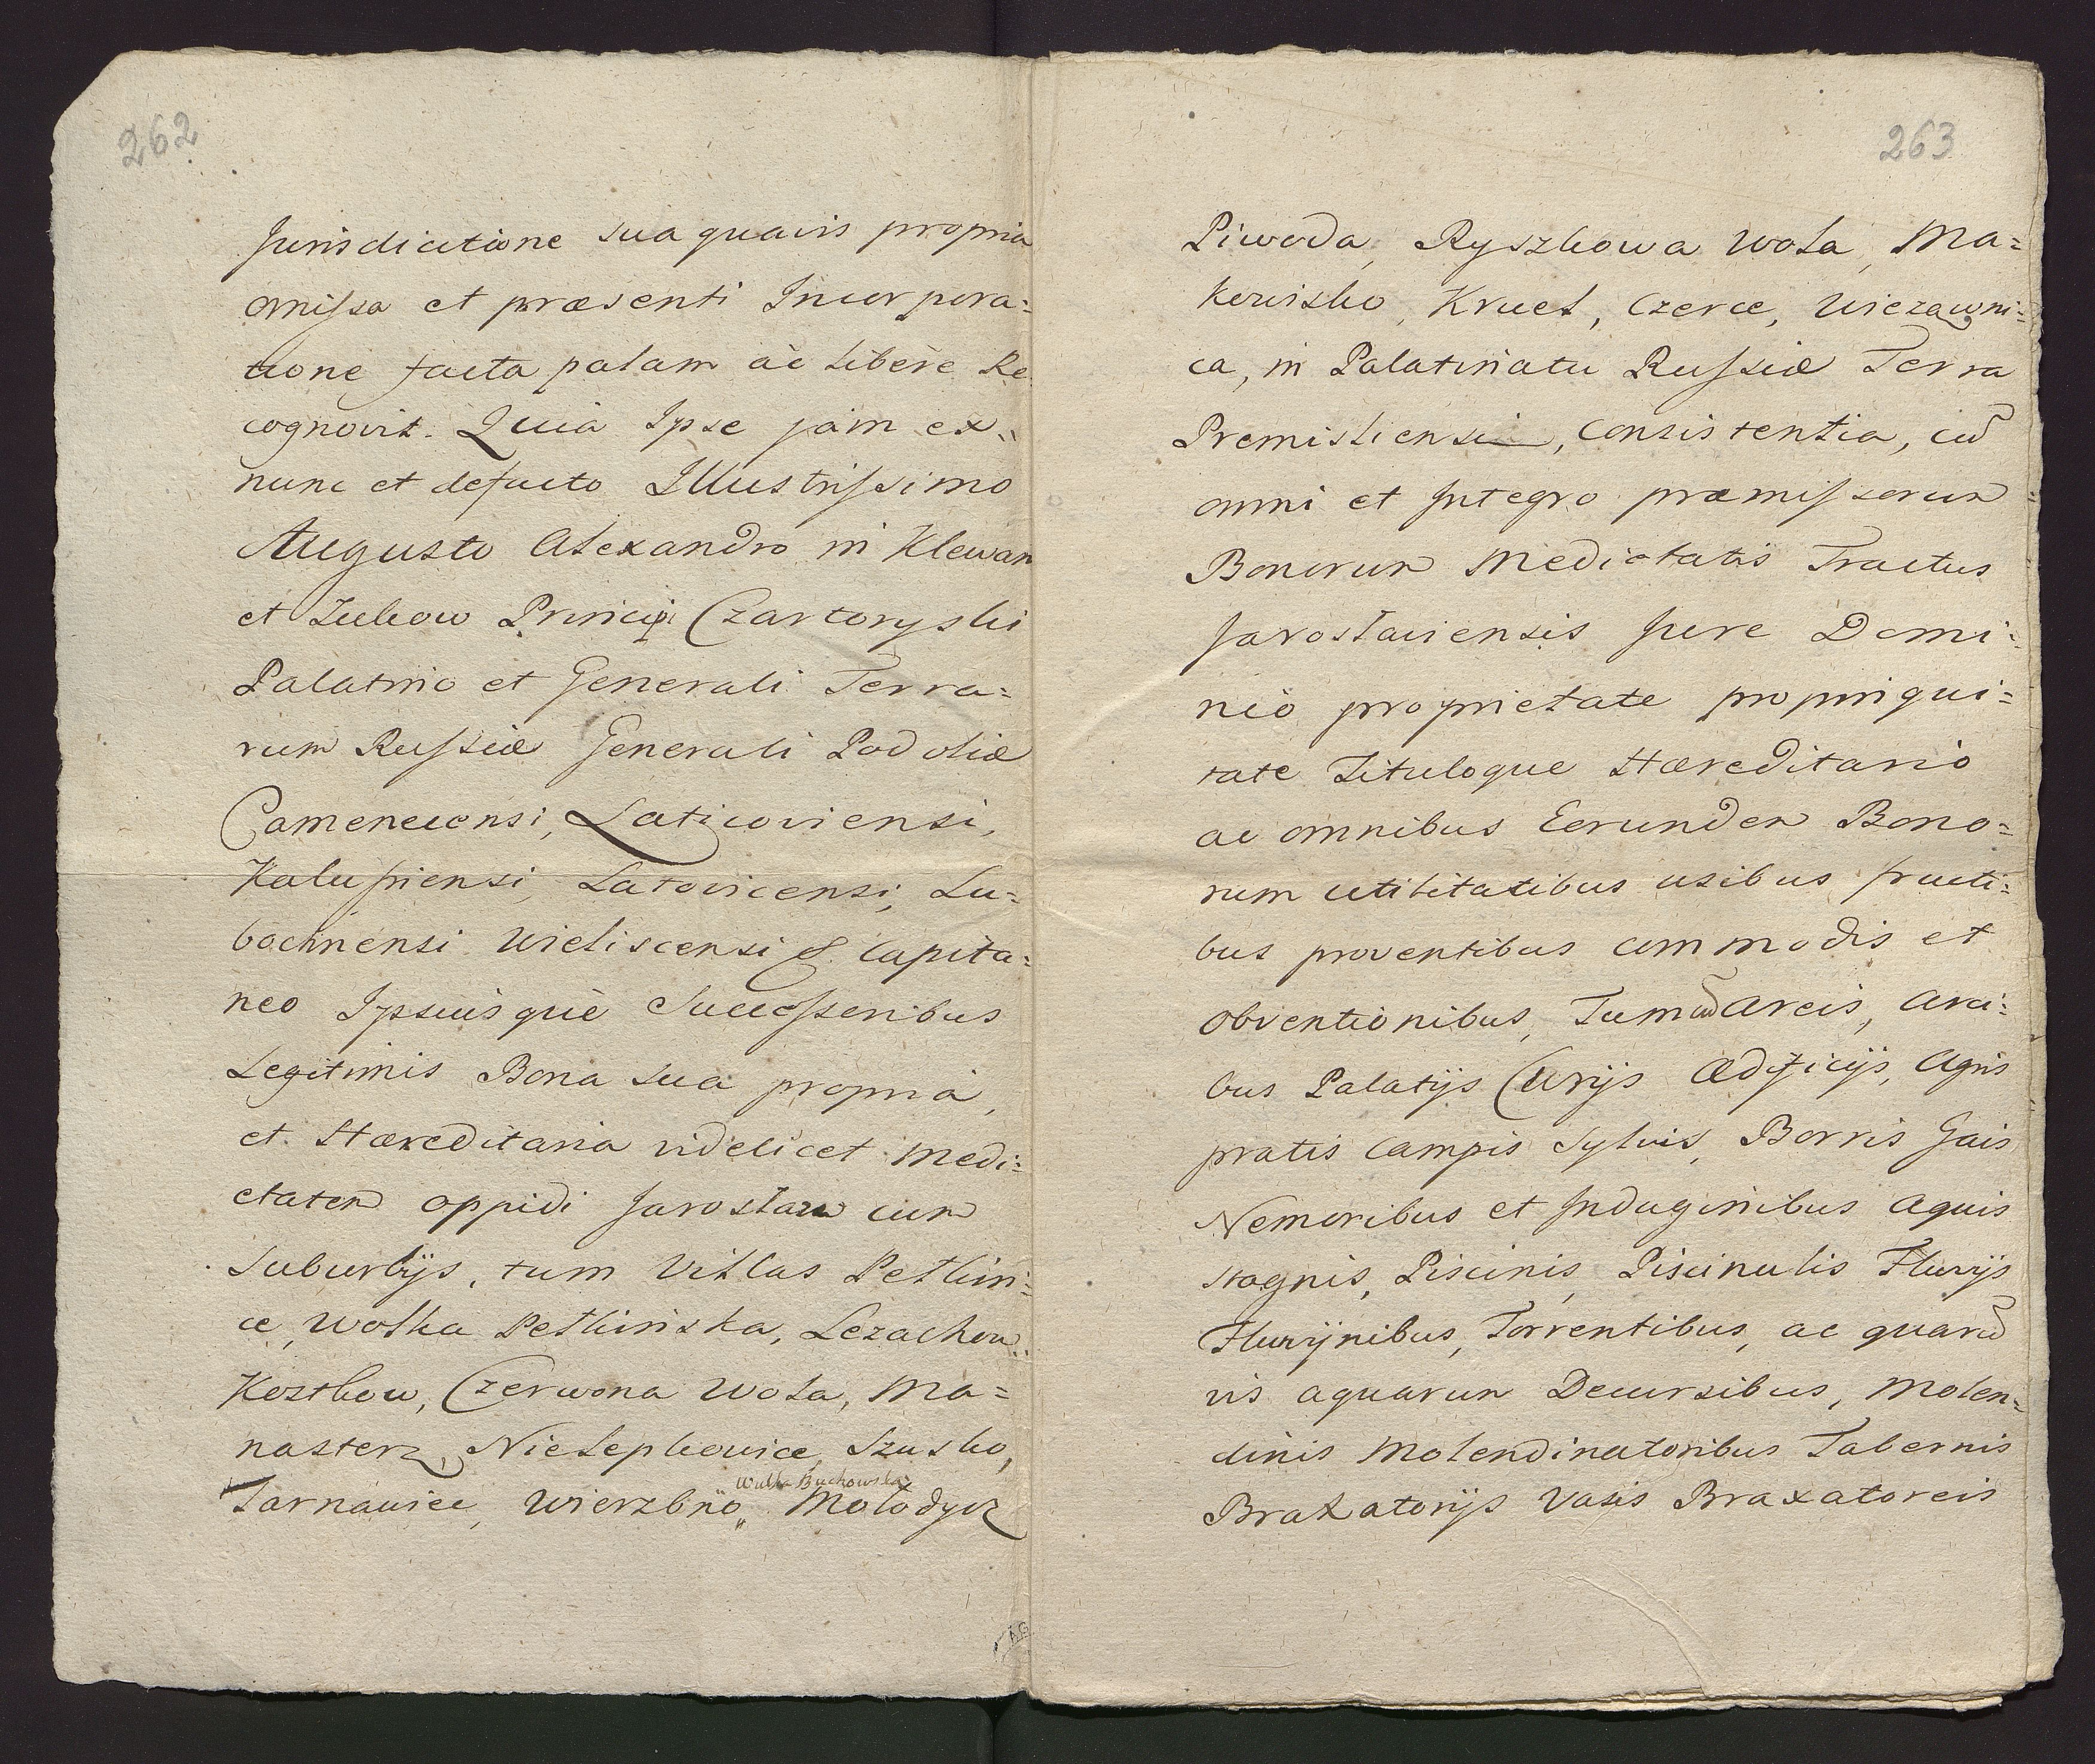 262
Jurisdictione sua quavis propria
omissa et præsenti Incorpora=
tione facta palam ac libere Re
cognovit. Quia Ipse jam ex=
nunc et defacto Illustrissimo
Augusto Alexandro in Klewan
et Zukow Principi Czartoryski
Palatino et Generali Terra=
rum Russiæ Generali Podoliæ
Camenecensi, Laticoviensi,
Kalussiensi, Latovicensi, Lu=
bochnensi Wieliscensi &. Capita=
neo Ipsiusque Successoribus
Legitimis Bona sua propria,
et Hæreditaria videlicet Medi=
etatem oppidi Jaroslaw cum
Suburbijs, tum Villas Petkin=
ce, Wolka Petkinska, Lezachow
Kostkow, Czerwona Wola, Ma=
nasterz, Nielepkowice, Szusko,
Wulka Buchowska
Tarnawice, Wierzbno,, Molodycz
263
Piwoda, Ryszkowa Wola, Ma=
kowisko, Kruet, Czerce, Wiezawni=
ca, in Palatinatu Russiæ Terra
Premisliensi, consistentia, cũ
omni et Integro præmissorum
Bonorum Medietatis Tractus
Jaroslaviensis Jure Domi=
nio proprietate propinqui=
tate Tituloque Hæreditario
ac omnibus Eorundem Bono=
rum utilitatibus usibus fructi=
bus proventibus commodis et
obventionibus, Tum cũ Areis, Arci=
bus Palatijs Curijs Ædificijs, Agris
pratis Campis Sylvis, Borris Gais
Nemoribus et Indaginibus Aquis
stagnis, Piscinis, Piscinulis Fluvijs
Fluvijnibus, Torrentibus, ac quarũ
vis aquarum Decursibus, Molen=
dinis Molendinatoribus Tabernis
Braxatorijs Vasis Braxatoreis